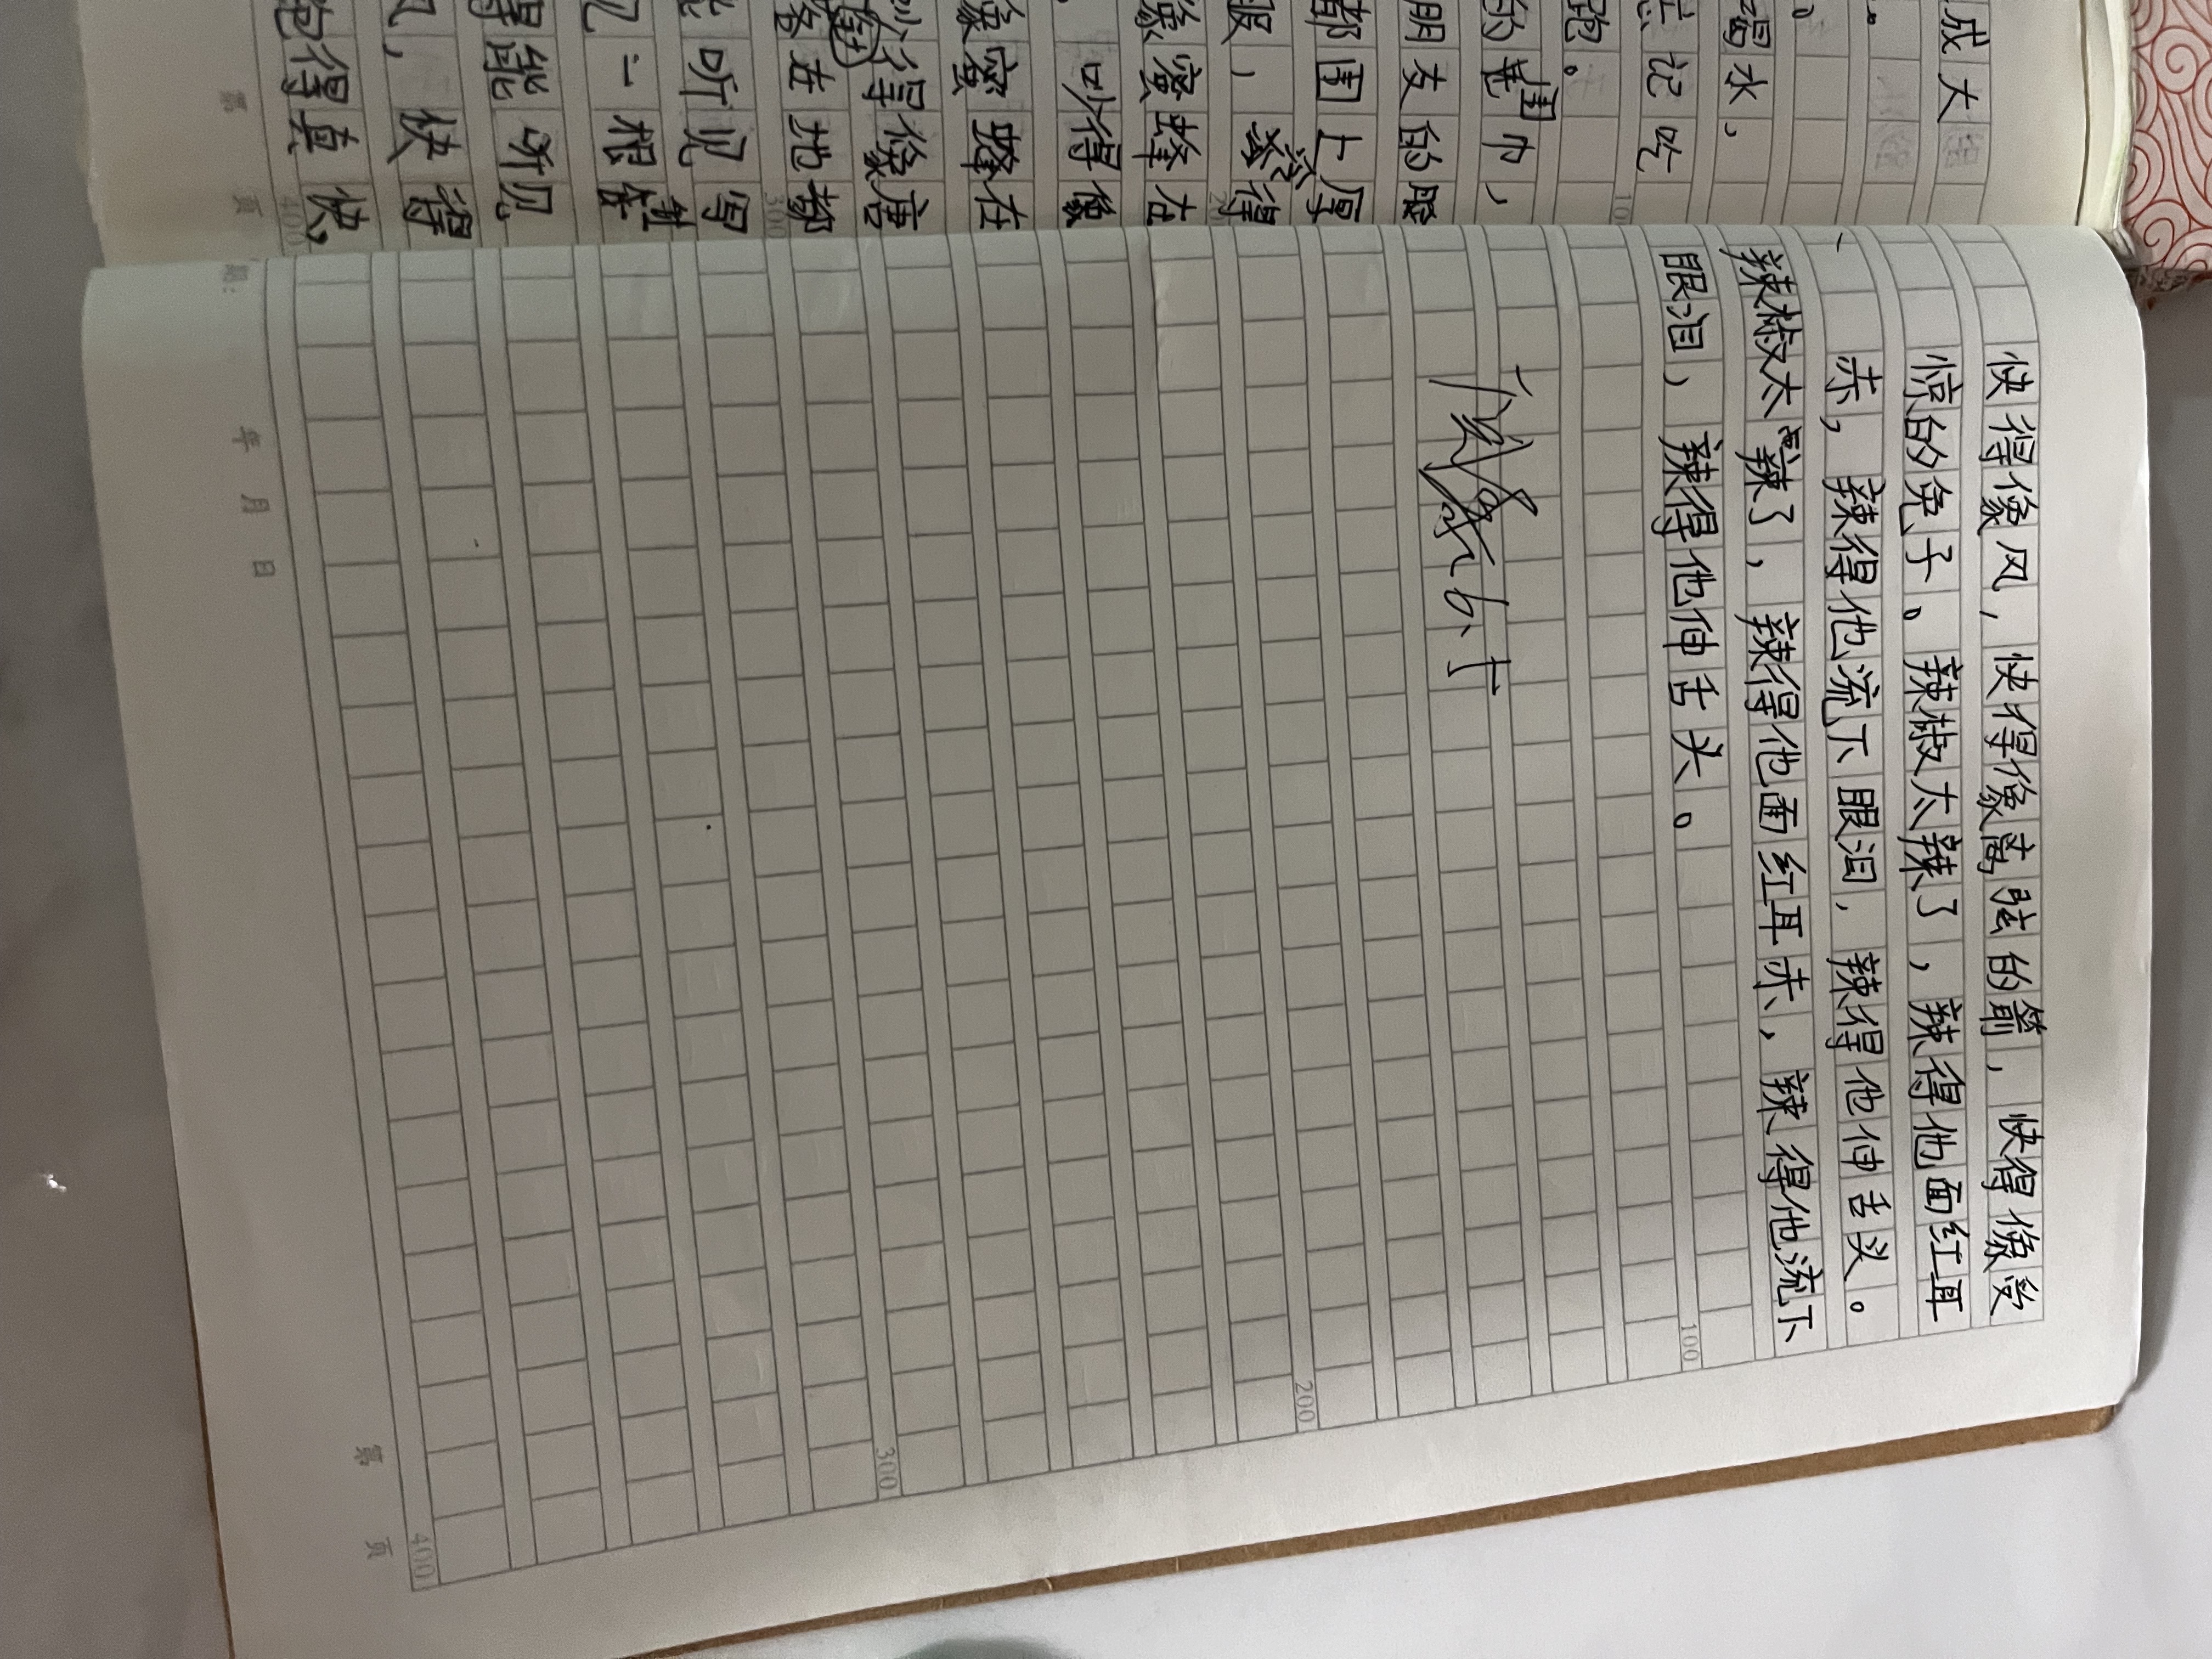 成大
喝水，
忘记吃
跑。
的围巾，
朋友的
都围上厚
服，得
像蜜蜂在
吵得像
像蜜蜂在
吵得像唐
落在地都
能听见
见一根针
得能听见
风，快得
跑得真快，
第 页
100
300
400
快得像风，快得像离弦的箭，快得像受
惊的免子。辣椒太辣了，辣得他面红耳
赤，辣得他流下眼泪，辣得他伸舌头。
、辣椒太辣了，辣得他面红耳赤，辣得他流下
眼泪，辣得他伸舌头。
100
200
300
400
年 月 日
第 页